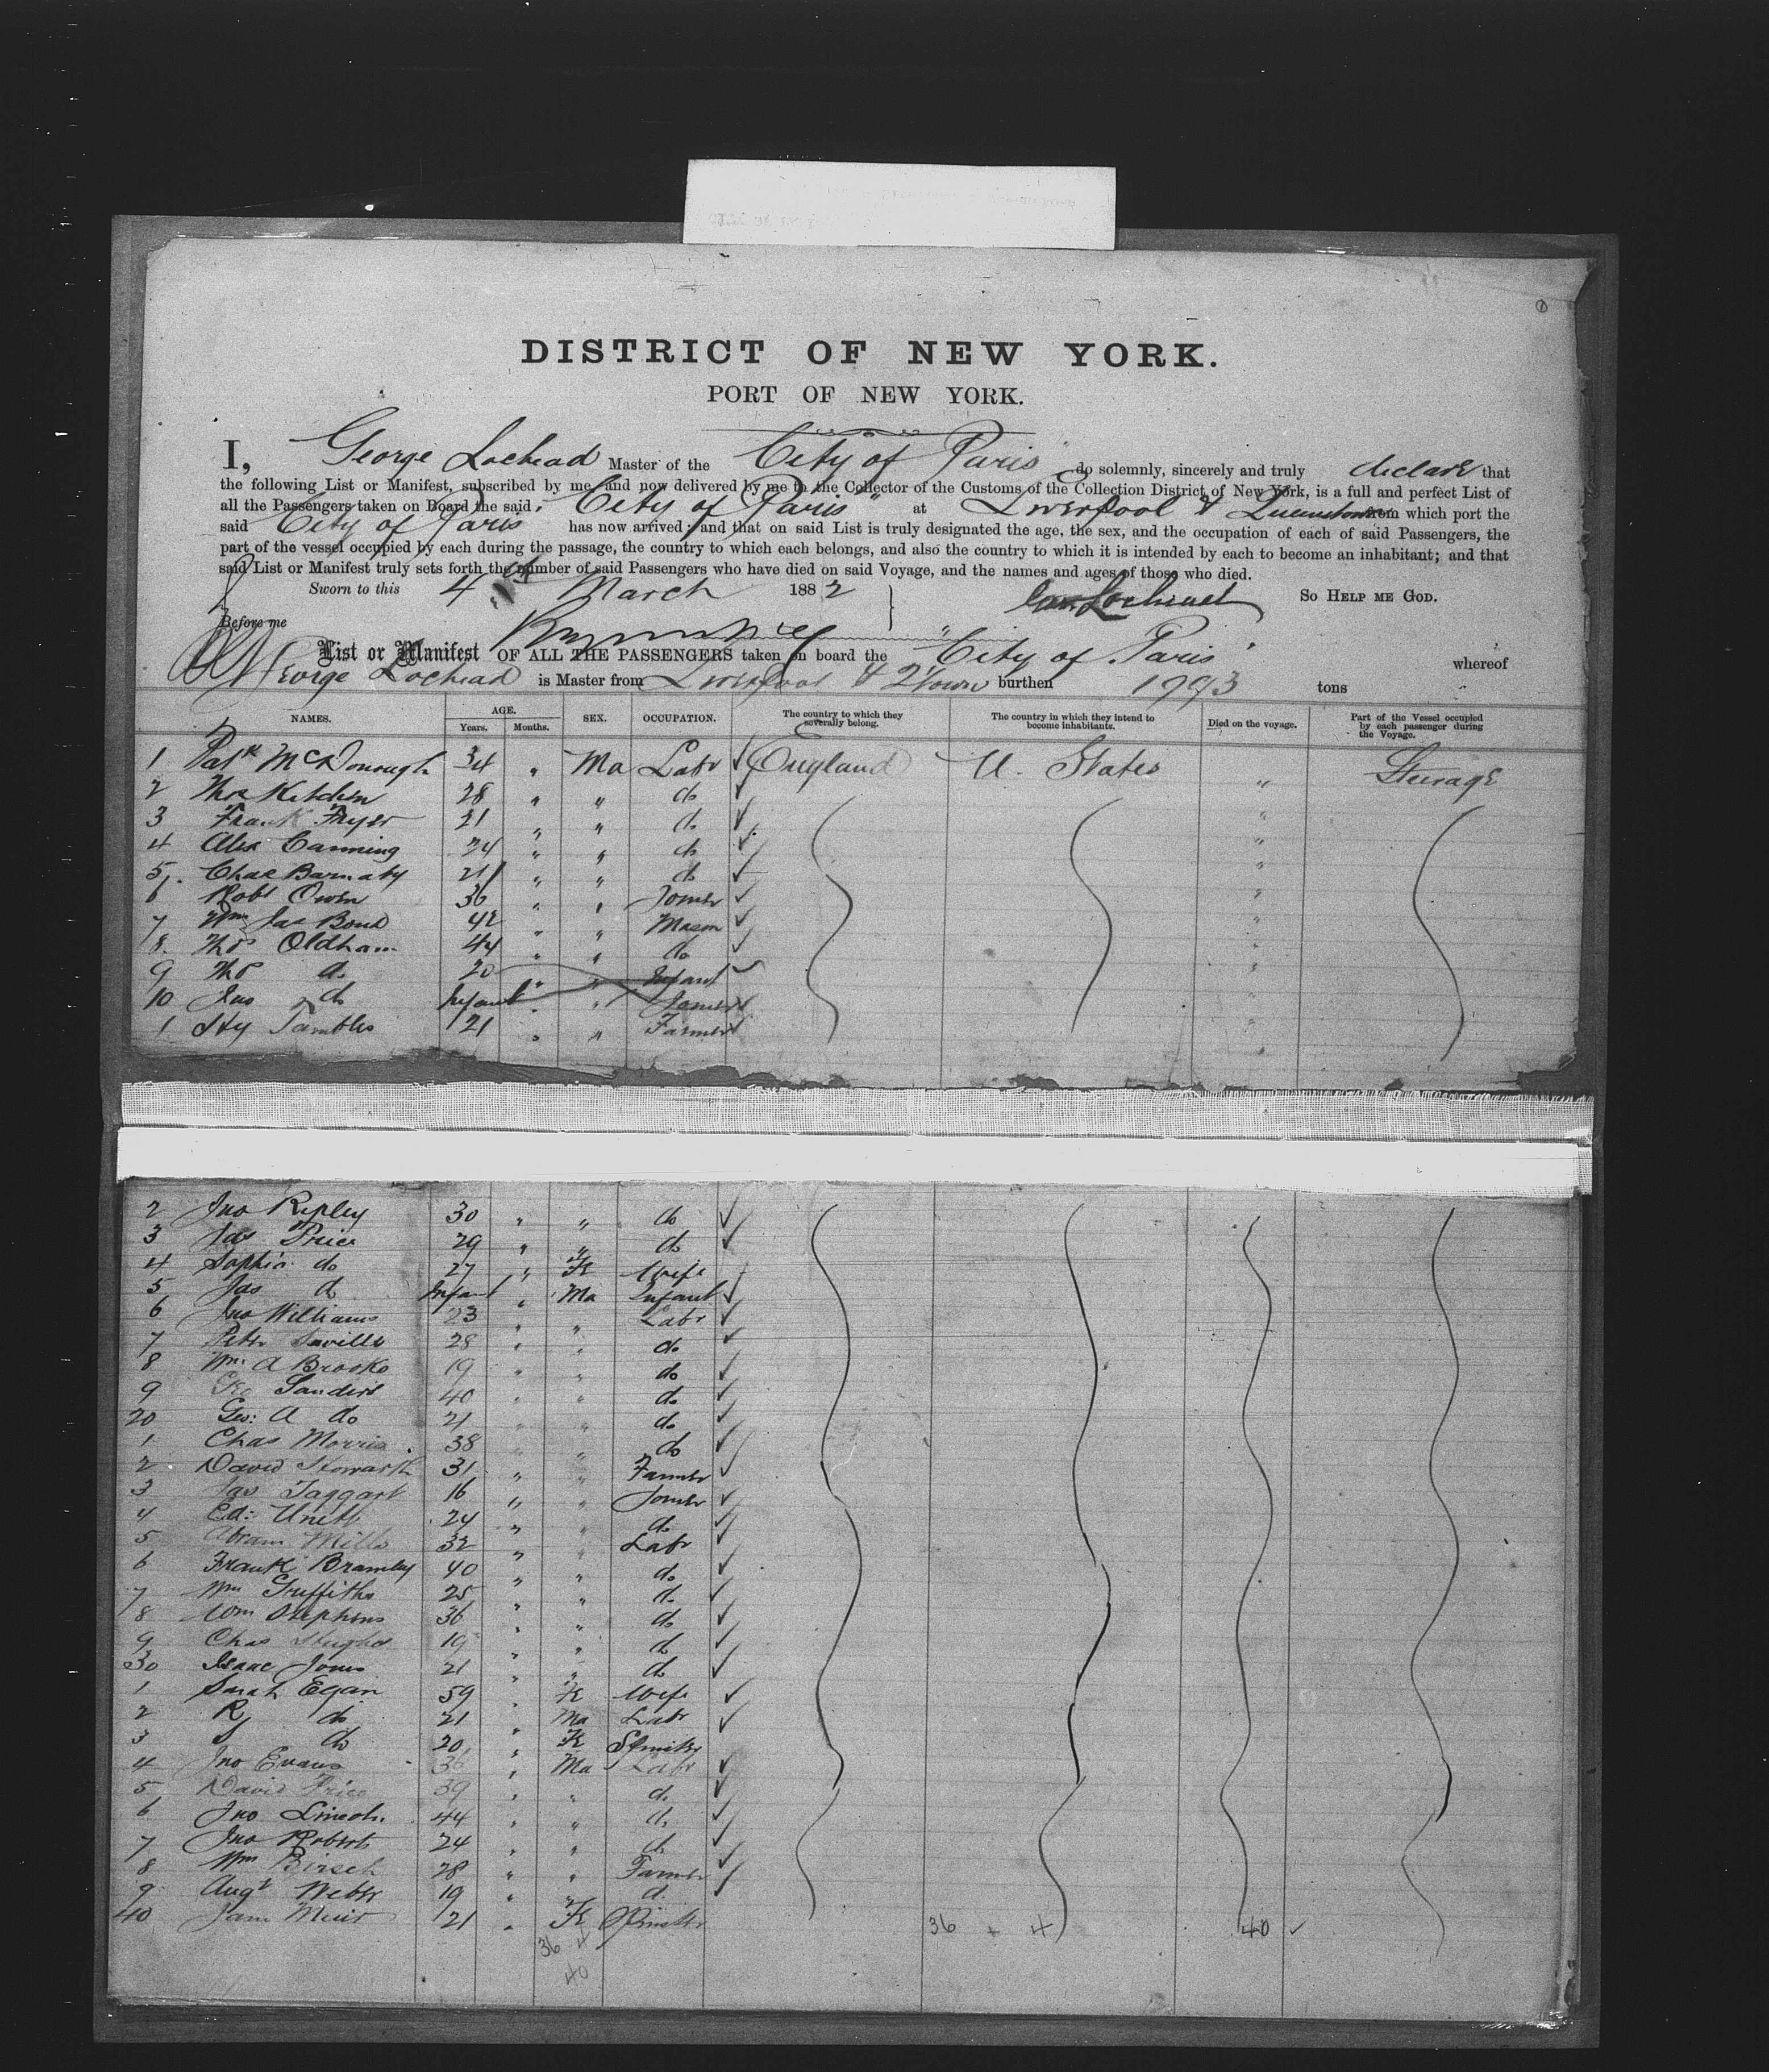 DISTRICT OF NEW YORK.
PORT OF NEW YORK.
I, George Lochead Master of the City of Paris do solemnly, sincerely and truly declare that
the following List or Manifest, subscribed by me, and now delivered by me to the Collector of the Customs of the Collection District of New York, is a full and perfect List of
all the Passengers taken on Board the said "City of Paris" at Liverpool & Queenstown from which port the
said City of Paris has now arrived; and that on said List is truly designated the age, the sex, and the occupation of each of said Passengers, the
part of the vessel occupied by each during the passage, the country to which each belongs, and also the country to which it is intended by each to become an inhabitant; and that
said List or Manifest truly sets forth the number of said Passengers who have died on said Voyage, and the names and ages of those who died.
Sworn to this 4 March 1882 Geo. Lochead SO HELP ME GOD.
Before me
List or Manifest OF ALL THE PASSENGERS taken on board the "City of Paris" whereof
George Lochead is Master from Liverpool & Qtown burthen tons
NAMES. AGE. Years. Months. SEX. OCCUPATION. The country to which they severally belong. The country in which they intend to become inhabitants. Died on the voyage. Part of the Vessel occupied by each passenger during the Voyage.
1 Patk McDonough 34 " Ma Labr England U. States " Steerage
2 Thos Kitchen 28 " " do "
3 Frank Fryer 21 " " do "
4 Alex Canning 24 " " do "
5 Chas Barnaby 21 " " do "
6 Robt Owen 36 " " Joiner "
7 Wm Jas Bond 42 " " Mason "
8 Thos Oldham 44 " " do "
9 Thos do 20 " " Infant "
10 Jas do Infant " " Joiner "
1 Hy Tambles 21 " " Farmer "
2 Jno Ripley 30 " " do
3 Jas Price 29 " " do
4 Sophia do 27 " Fe Wife
5 Jas do Infant " Ma Infant
6 Jno Williams 23 " " Labr
7 Peter Saville 28 " " do
8 Wm A Brooke 19 " " do
9 Geo Sanders 40 " " do
20 Geo: A do 21 " " do
1 Chas Morris 38 " " do
2 David Howarth 31 " " Farmer
3 Jas Taggart 16 " " Joiner
4 Ed: Unett 24 " " do
5 Abram Mills 32 " " Labr
6 Frank Bramley 40 " " do
7 Wm Griffiths 25 " " do
8 Wm Stephens 36 " " do
9 Chas Hughes 19 " " do
30 Isaac Jones 21 " " do
1 Sarah Egan 59 " Fe Wife
2 R do 21 " Ma Labr
3 S do 20 " Fe Spinster
4 Jno Evans 36 " Ma Labr
5 David Price 39 " " do
6 Jno Lincoln 44 " " do
7 Jno Roberts 24 " " do
8 Wm Birsch 28 " " Farmer
9 Augt Weber 19 " " do
40 Jane Muir 21 " Fe Spinster 36 + 4 40
36 4
40